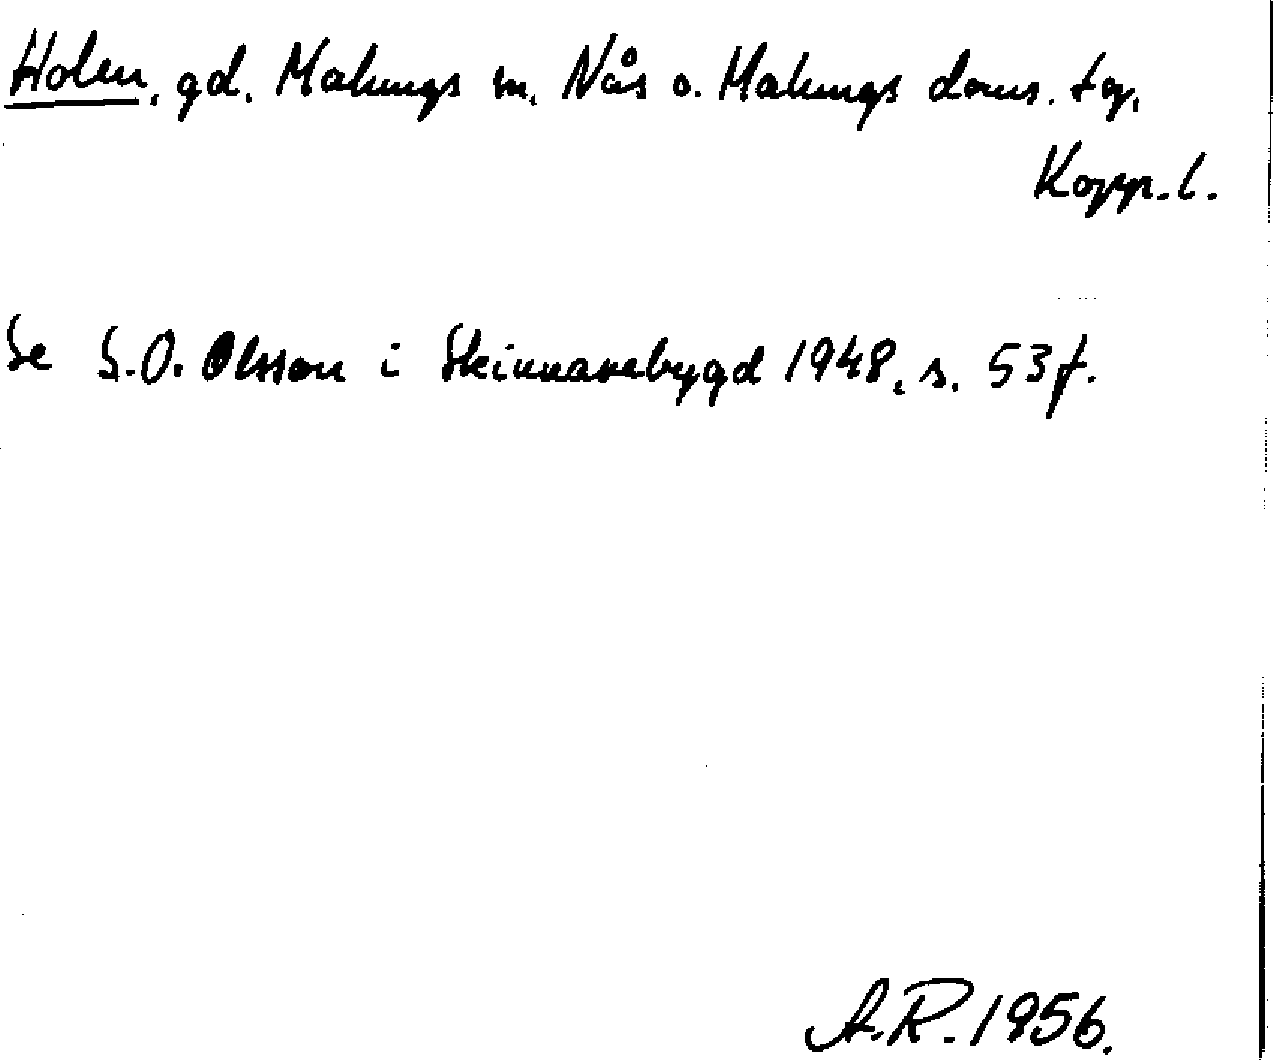 Holen, gd. Malungs sn, Nås o. Malungs doms. tg,
Kopp. l.
Se S.O. Olsson i Skinnarebygd 1948, s. 53 f.
A.R. 1956.